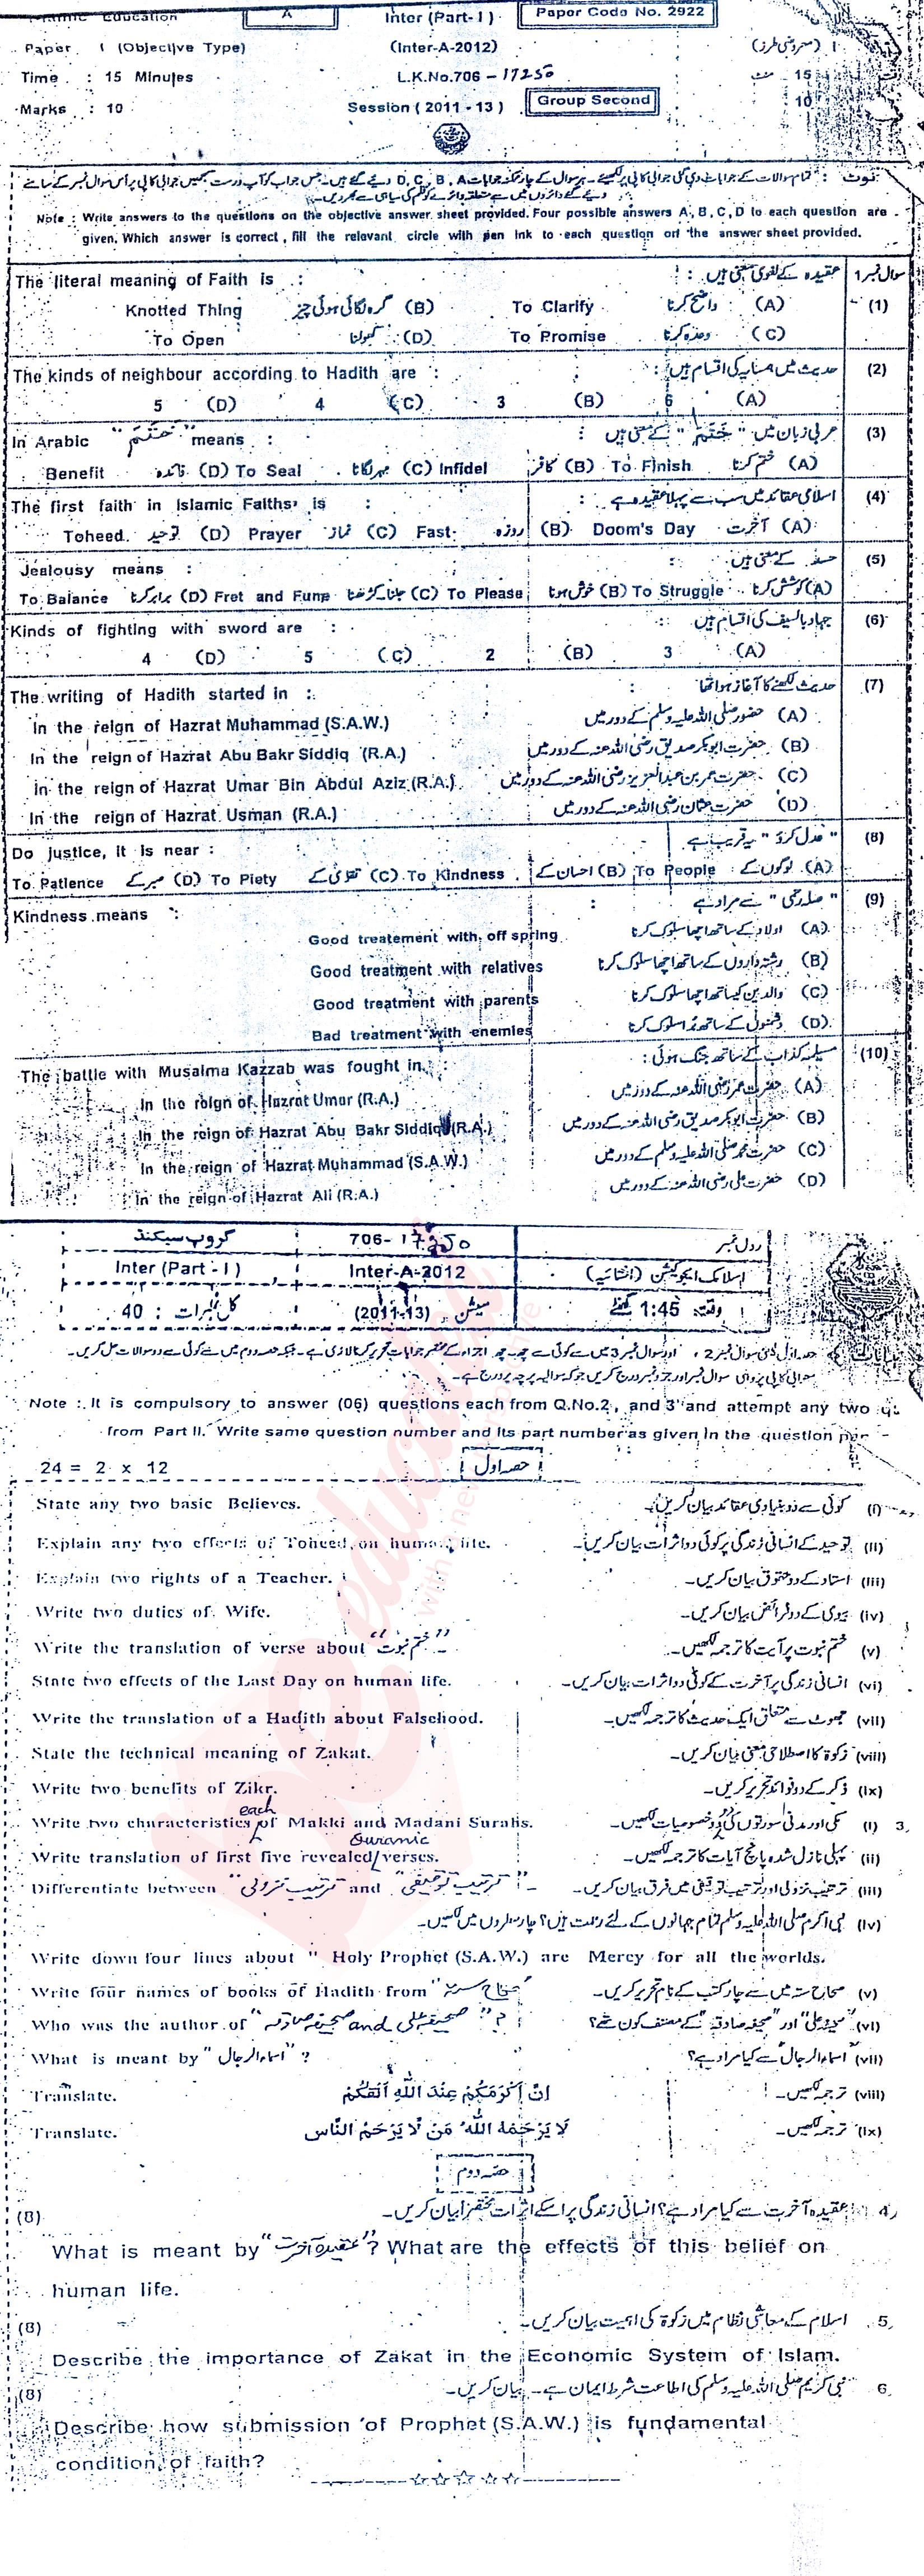 Islamic Education A Inter (Part - I) Paper Code No. 2922
Paper I (Objective Type) (Inter-A-2012) I (معروضی طرز)
Time : 15 Minutes L.K.No.706 - 17250 15 منٹ
Marks : 10 Session ( 2011 - 13 ) Group Second 10
نوٹ : تمام سوالات کے جوابات دی گئی جوابی کاپی پر لکھیئے ۔ ہر سوال کے چار ممکنہ جوابات D, C, B, A دیئے گئے ہیں۔ جس جواب کو آپ درست سمجھیں جوابی کاپی پر اُس سوال نمبر کے سامنے
دیئے گئے دائروں میں سے متعلقہ دائرے کو قلم کی سیاہی سے بھر دیں۔
Note : Write answers to the questions on the objective answer sheet provided. Four possible answers A, B, C, D to each question are
given. Which answer is correct , fill the relevant circle with pen ink to each question on the answer sheet provided.
The literal meaning of Faith is : عقیدہ کے لغوی معنی ہیں : سوال نمبر 1
Knotted Thing گرہ لگائی ہوئی چیز (B) To Clarify واضح کرنا (A) (1)
To Open کھولنا (D) To Promise وعدہ کرنا (C)
The kinds of neighbour according to Hadith are : حدیث میں ہمسایہ کی اقسام ہیں : (2)
5 (D) 4 (C) 3 (B) 6 (A)
In Arabic "خَتَمَ" means : عربی زبان میں "خَتَمَ" کے معنی ہیں : (3)
Benefit فائدہ (D) To Seal مہر لگانا (C) Infidel کافر (B) To Finish ختم کرنا (A)
The first faith in Islamic Faiths is : اسلامی عقائد میں سب سے پہلا عقیدہ ہے : (4)
Toheed توحید (D) Prayer نماز (C) Fast روزہ (B) Doom's Day آخرت (A)
Jealousy means : حسد کے معنی ہیں : (5)
To Balance برابر کرنا (D) Fret and Fume جلنا کڑھنا (C) To Please خوش ہونا (B) To Struggle کوشش کرنا (A)
Kinds of fighting with sword are : جہاد بالسیف کی اقسام ہیں : (6)
4 (D) 5 (C) 2 (B) 3 (A)
The writing of Hadith started in : حدیث لکھنے کا آغاز ہوا تھا : (7)
In the reign of Hazrat Muhammad (S.A.W.) حضور صلی اللہ علیہ وسلم کے دور میں (A)
In the reign of Hazrat Abu Bakr Siddiq (R.A.) حضرت ابوبکر صدیق رضی اللہ عنہ کے دور میں (B)
In the reign of Hazrat Umar Bin Abdul Aziz (R.A.) حضرت عمر بن عبدالعزیز رضی اللہ عنہ کے دور میں (C)
In the reign of Hazrat Usman (R.A.) حضرت عثمان رضی اللہ عنہ کے دور میں (D)
Do justice, it is near : "عدل کرو" یہ قریب ہے (8)
To Patience صبر کے (D) To Piety تقویٰ کے (C) To Kindness احسان کے (B) To People لوگوں کے (A)
Kindness means : "صلہ رحمی" سے مراد ہے : (9)
Good treatement with off spring اولاد کے ساتھ اچھا سلوک کرنا (A)
Good treatment with relatives رشتہ داروں کے ساتھ اچھا سلوک کرنا (B)
Good treatment with parents والدین کیساتھ اچھا سلوک کرنا (C)
Bad treatment with enemies دشمنوں کے ساتھ بُرا سلوک کرنا (D)
The battle with Musalma Kazzab was fought in : مسیلمہ کذاب کے ساتھ جنگ ہوئی : (10)
In the reign of Hazrat Umar (R.A.) حضرت عمر رضی اللہ عنہ کے دور میں (A)
In the reign of Hazrat Abu Bakr Siddiq (R.A.) حضرت ابوبکر صدیق رضی اللہ عنہ کے دور میں (B)
In the reign of Hazrat Muhammad (S.A.W.) حضرت محمد صلی اللہ علیہ وسلم کے دور میں (C)
In the reign of Hazrat Ali (R.A.) حضرت علی رضی اللہ عنہ کے دور میں (D)
گروپ سیکنڈ 706- 17250 رول نمبر
Inter (Part - I) Inter-A-2012 اسلامک ایجوکیشن (انشائیہ)
کل نمبرات : 40 سیشن (2011-13) وقت 1:45 گھنٹے
حصہ اول یعنی سوال نمبر 2 ، اور سوال نمبر 3 میں سے کوئی سے چھ۔ چھ اجزاء کے مختصر جوابات تحریر کرنا لازمی ہے۔ جبکہ حصہ دوم میں سے کوئی سے دو سوالات حل کریں۔
جوابی کاپی پر وہی سوال نمبر اور جزو نمبر درج کریں جو کہ سوالیہ پرچہ پر درج ہے۔
Note : It is compulsory to answer (06) questions each from Q.No.2, and 3 and attempt any two
from Part II. Write same question number and its part number as given in the question
24 = 2 x 12 حصہ اول
State any two basic Believes. کوئی سے دو بنیادی عقائد بیان کریں۔ (i)
Explain any two effects of Toheed on human life. توحید کے انسانی زندگی پر کوئی دو اثرات بیان کریں۔ (ii)
Explain two rights of a Teacher. استاد کے دو حقوق بیان کریں۔ (iii)
Write two duties of Wife. بیوی کے دو فرائض بیان کریں۔ (iv)
Write the translation of verse about "ختم نبوت"۔ ختم نبوت پر آیت کا ترجمہ لکھیں۔ (v)
State two effects of the Last Day on human life. انسانی زندگی پر آخرت کے کوئی دو اثرات بیان کریں۔ (vi)
Write the translation of a Hadith about Falsehood. جھوٹ سے متعلق ایک حدیث کا ترجمہ لکھیں۔ (vii)
State the technical meaning of Zakat. زکوٰۃ کا اصطلاحی معنی بیان کریں۔ (viii)
Write two benefits of Zikr. ذکر کے دو فوائد تحریر کریں۔ (ix)
Write two characteristics each of Makki and Madani Surahs. مکی اور مدنی سورتوں کی دو دو خصوصیات لکھیں۔ (i) 3
Write translation of first five revealed Quranic verses. پہلی نازل شدہ پانچ آیات کا ترجمہ لکھیں۔ (ii)
Differentiate between "ترتیب نزولی" and "ترتیب توقیفی"۔ ترتیب نزولی اور ترتیب توقیفی میں فرق بیان کریں۔ (iii)
نبی اکرم صلی اللہ علیہ وسلم تمام جہانوں کے لئے رحمت ہیں؟ چار سطروں میں لکھیں۔ (iv)
Write down four lines about " Holy Prophet (S.A.W.) are Mercy for all the worlds.
Write four names of books of Hadith from "صحاح ستہ" صحاح ستہ میں سے چار کتب کے نام تحریر کریں۔ (v)
Who was the author of "صحیفہ صادقہ and صحیفہ علی" ؟ "صحیفہ علی" اور "صحیفہ صادقہ" کے مصنف کون تھے؟ (vi)
What is meant by "اسماء الرجال" ? "اسماء الرجال" سے کیا مراد ہے؟ (vii)
Translate. اِنَّ اَكْرَمَكُمْ عِنْدَ اللّٰهِ اَتْقٰكُمْ ترجمہ لکھیں۔ (viii)
Translate. لَا يَرْحَمُهُ اللّٰهُ مَنْ لَّا يَرْحَمُ النَّاسَ ترجمہ لکھیں۔ (ix)
حصہ دوم
(8) عقیدہ آخرت سے کیا مراد ہے؟ انسانی زندگی پر اسکے اثرات مختصراً بیان کریں۔ 4
What is meant by "عقیدہ آخرت"? What are the effects of this belief on
human life.
(8) اسلام کے معاشی نظام میں زکوٰۃ کی اہمیت بیان کریں۔ 5
Describe the importance of Zakat in the Economic System of Islam.
(8) نبی کریم صلی اللہ علیہ وسلم کی اطاعت شرط ایمان ہے۔ بیان کریں۔ 6
Describe how submission of Prophet (S.A.W.) is fundamental
condition of faith?